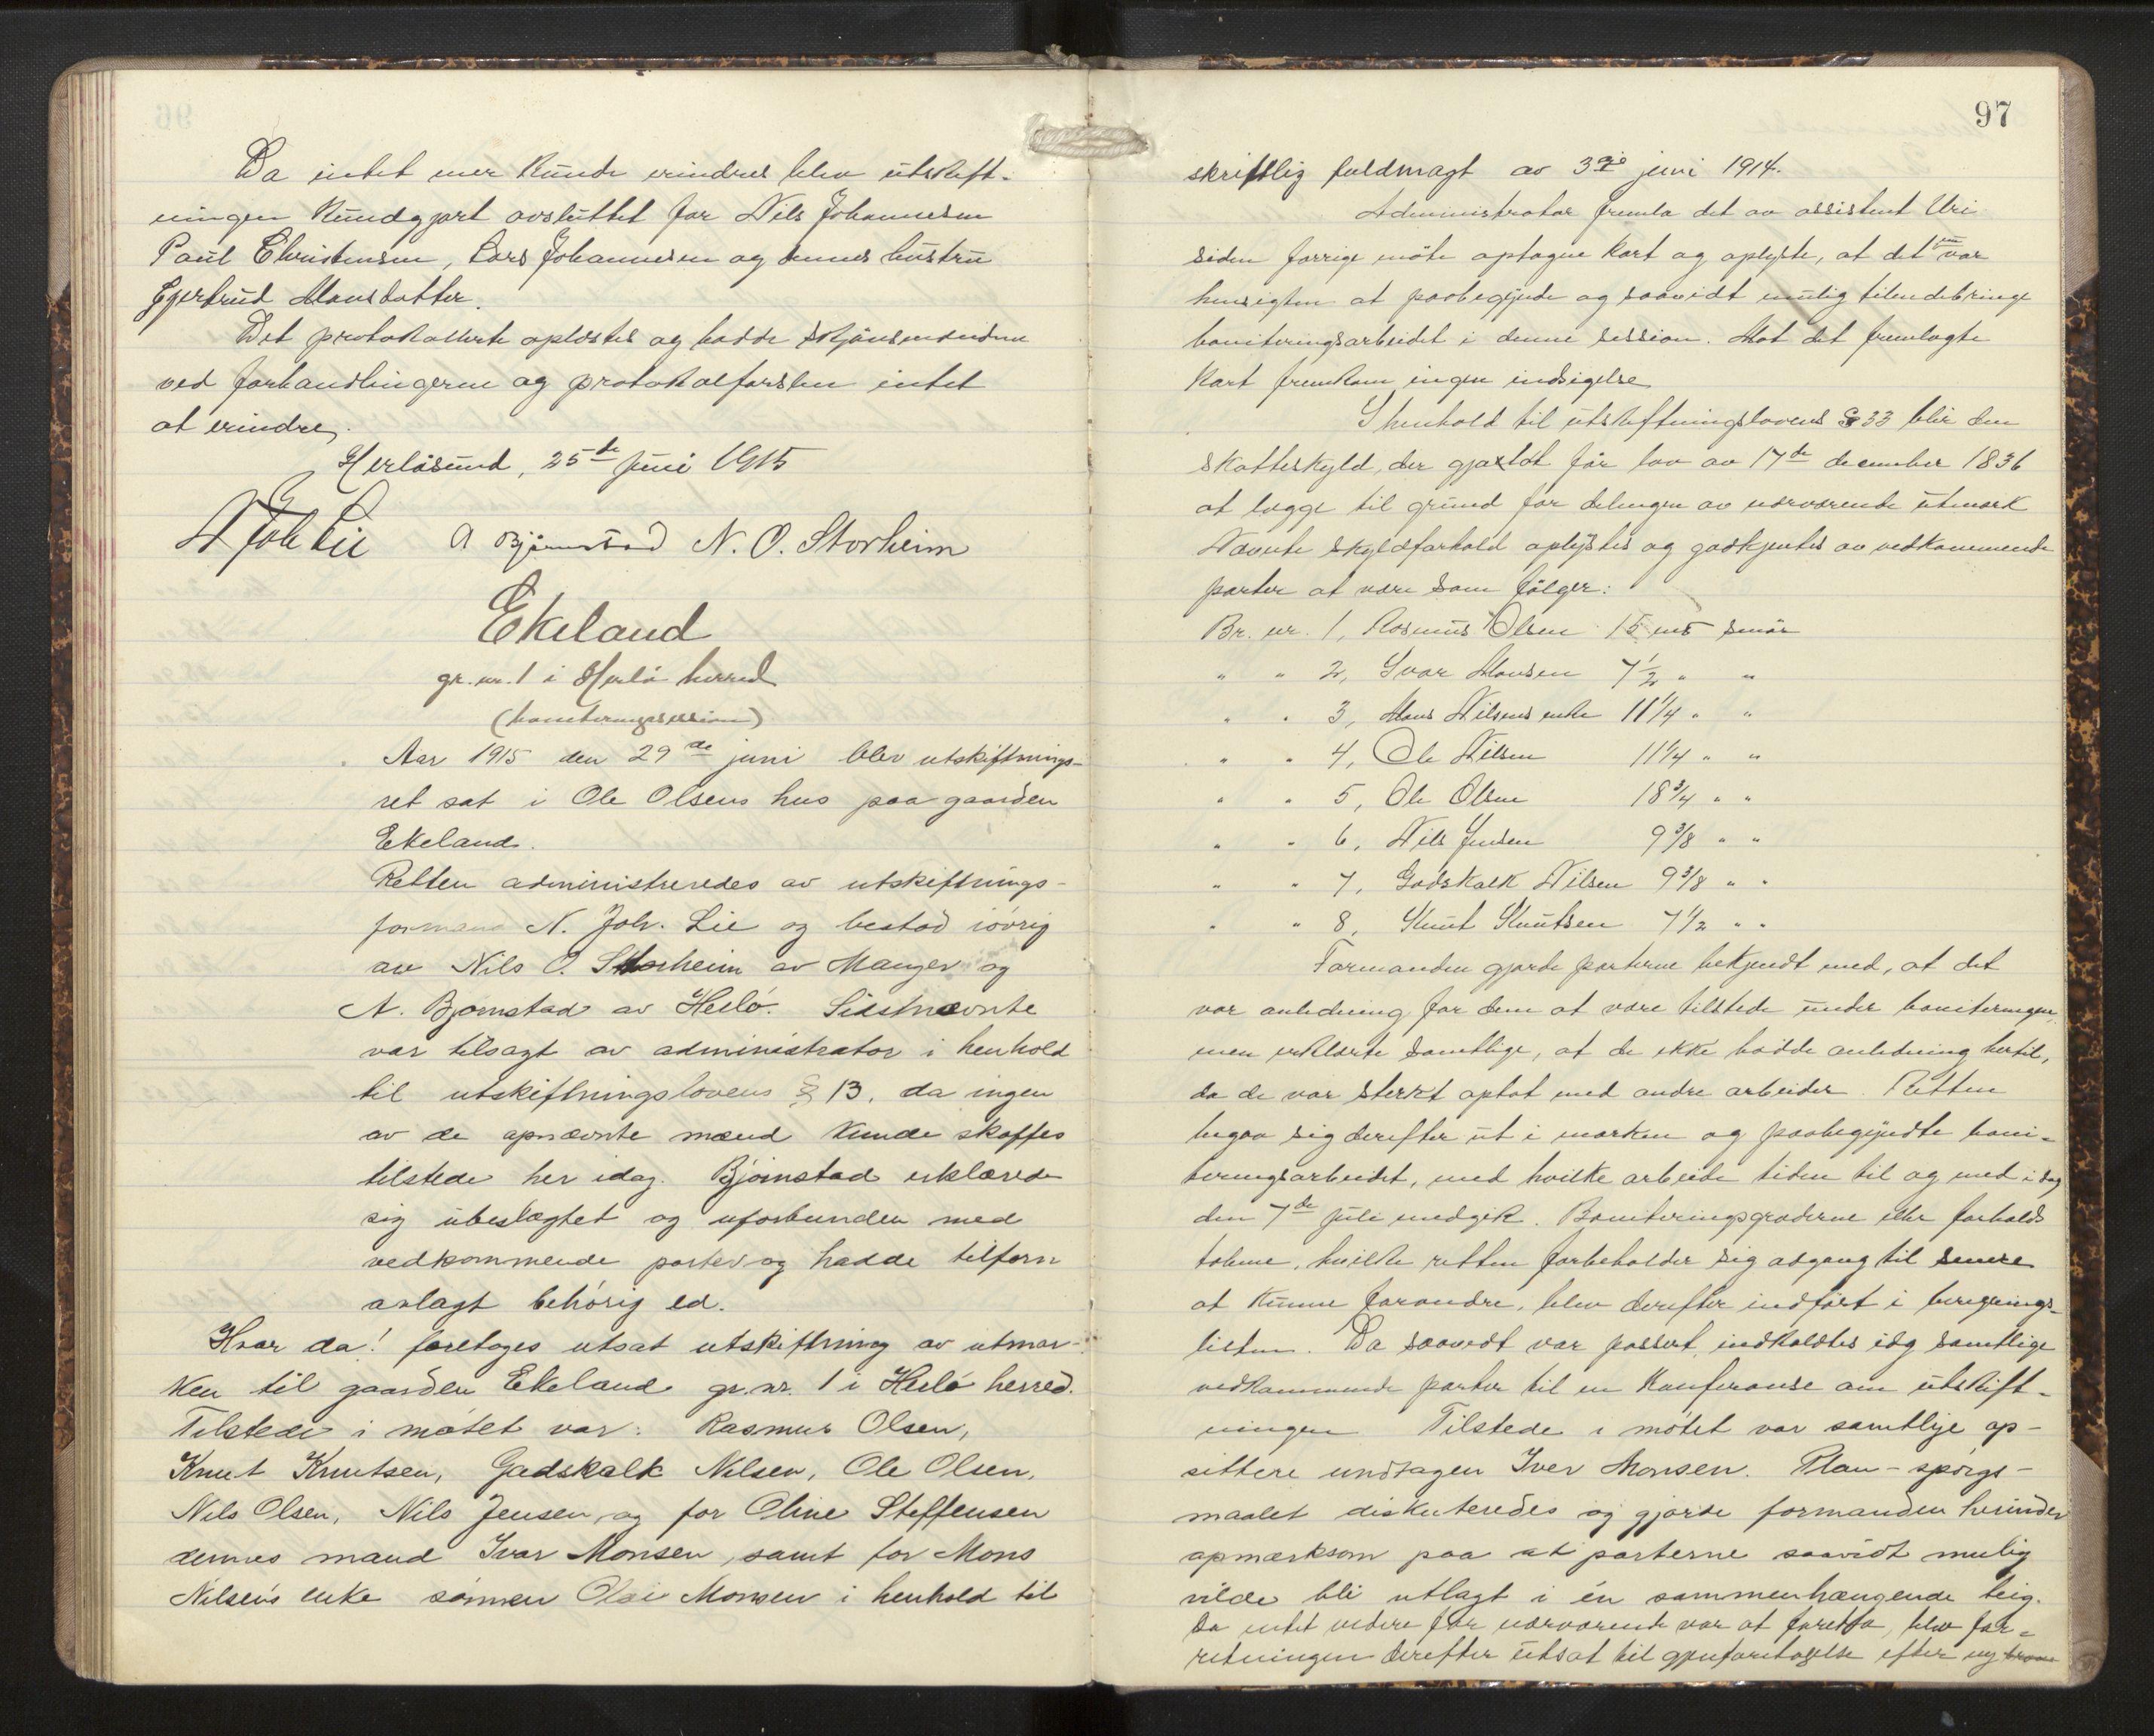 Da intet mer kunde erindres blev utskift-
ningen kundgjort avsluttet for Nils Johannesen
Paul Christensen, Lars Johannesen og dennes hustru
Gjertrud Monsdatter.
Det protokollerte oplæstes og hadde skjönsmændene
ved forhandlingerne og protokolförslen intet
at erindre.
Herlösund, 25de juni 1915
N Joh Lie A Bjørnstad N. O. Storheim
Ekeland
gr. nr. 1 i Herlö herred
(boniteringssession)
Aar 1915 den 29de juni blev utskiftnings-
ret sat i Ole Olsens hus paa gaarden
Ekeland.
Retten administreredes av utskiftnings-
formand N. Joh. Lie og bestod iövrig
av Nils O. Storheim av Manger og
A. Bjornstad av Herlö. Sidstnævnte
var tilsagt av administrator i henhold
til utskiftningslovens § 13, da ingen
av de opnævnte mænd kunde skaffes
tilstede her idag. Björnstad erklærede
sig ubeslægtet og uforbunden med
vedkommende parter og hadde tilforn
avlagt behörig ed.
Hvor da! foretoges utsat utskiftning av utmar-
ken til gaarden Ekeland gr. nr. 1 i Herlö herred.
Tilstede i mötet var: Rasmus Olsen,
Knut Knutsen, Gadskalk Nilsen, Ole Olsen,
Nils Olsen, Nils Jensen og for Oline Steffensen
dennes mand Ivar Monsen, samt for Mons
Nilsens enke sönnen Olai Monsen i henhold til
97
skriftlig fuldmagt av 3die juni 1914.
Administrator fremla det av assistent Uri
siden forrige möte optagne kart og oplyste, at det nu var
hensigten at paabegynde og saavidt mulig tilendebringe
boniteringsarbeidet i denne session. Mot det fremlagte
kart fremkom ingen indsigelse
I henhold til utskiftningslovens § 33 blir den
skatteskyld, der gjaldt för lov av 17de december 1836
at lægge til grund for delingen av nærværende utmark
Nævnte skyldforhold oplystes og godkjentes av vedkommende
parter at være som fölger:
Br. nr. 1, Rasmus Olsen 15 mb smör
" " 2, Ivar Monsen 7 1/2 " "
" " 3, Mons Nilsens enke 11 1/4 " "
" " 4, Ole Nilsen 11 1/4 " "
" " 5, Ole Olsen 18 3/4 " "
" " 6, Nils Jensen 9 3/8 " "
" " 7, Godskalk Nilsen 9 3/8 " "
" " 8, Knut Knutsen 7 1/2 " "
Formanden gjorde parterne bekjendt med, at det
var anledning for dem at være tilstede under boniteringen,
men erklærte samtlige, at de ikke hadde anledning hertil,
da de var sterkt optat med andre arbeider. Retten
begav sig derefter ut i marken og paabegyndte boni-
teringsarbeidet, med hvilke arbeide tiden til og med i dag
den 7de juli medgik. Boniteringsgraderne eller forholds
tallene, hvilke retten forbeholder sig adgang til senere
at kunne forandre, blev derefter indfört i beregnings-
listen. Da saavidt var passert, indkaldtes idag samtlige
vedkommende parter til en konferanse om utskift-
ningen Tilstede i mötet var samtlige op-
sittere undtagen Iver Monsen. Plan-spörgs-
maalet diskuteredes og gjorde formanden herunder
opmærksom paa at parterne saavidt mulig
vilde bli utlagt i én sammenhængende teig.
Da intet videre for nærværende var at foretta, blev for-
retningen derefter utsat til gjenforetagelse efter ny